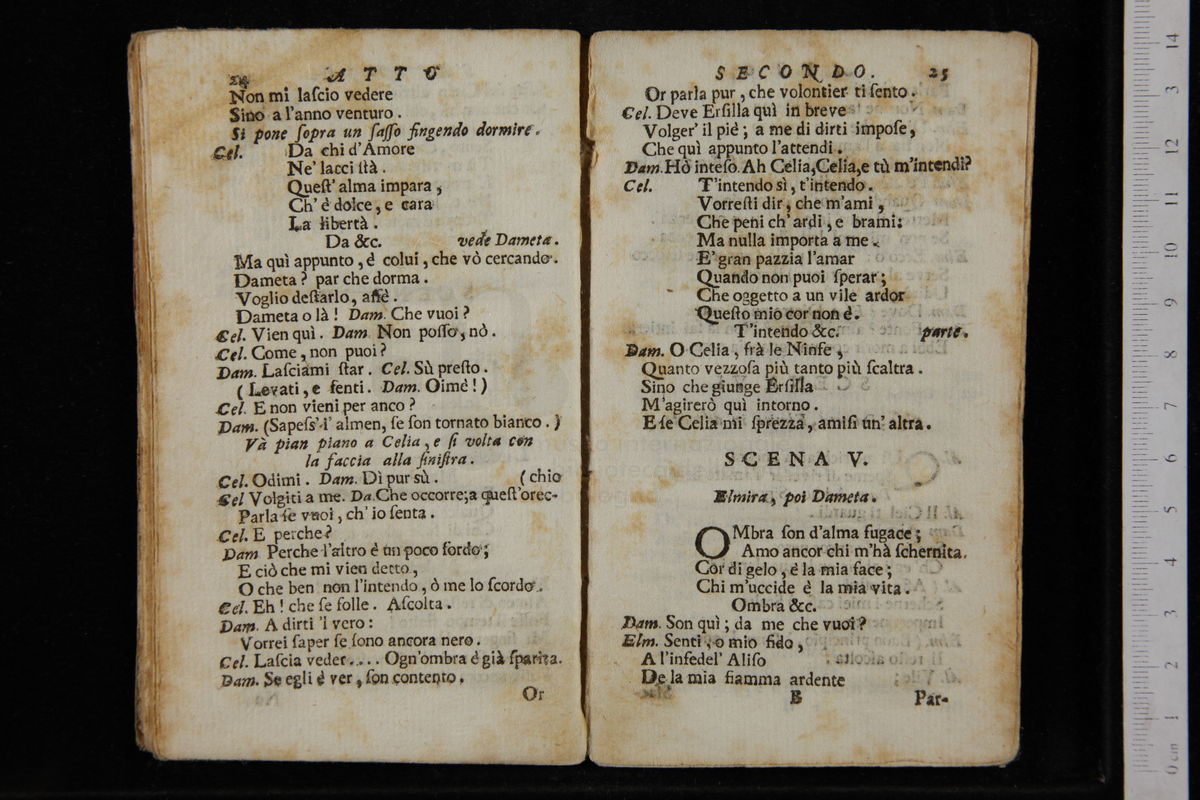 24 ATTO
Non mi laſcio vedere
Sino a l'anno venturo.
Si pone ſopra un ſaſſo fingendo dormire.
Cel. Da chi d'Amore
Ne' lacci ſtà.
Queſt' alma impara,
Ch' è dolce, e cara
La libertà.
Da &c. vede Dameta.
Ma quì appunto, è colui, che vò cercando.
Dameta? par che dorma.
Voglio deſtarlo, affè.
Dameta o là! Dam. Che vuoi?
Cel. Vien quì. Dam. Non poſſo, nò.
Cel. Come, non puoi?
Dam. Laſciami ſtar. Cel. Sù preſto.
(Levati, e ſenti. Dam. Oimè!)
Cel. E non vieni per anco?
Dam. (Sapeſs'-i' almen, ſe ſon tornato bianco.)
Và pian piano a Celia, e ſi volta con
la faccia alla ſiniſtra.
Cel. Odimi. Dam. Dì pur sù. (chio
Cel Volgiti a me. Da. Che occorre; a queſt'orec-
Parla ſe vuoi, ch' io ſenta.
Cel. E perche?
Dam Perche l'altro è un poco ſordo;
E ciò che mi vien detto,
O che ben non l'intendo, ò me lo ſcordo.
Cel. Eh! che ſe folle. Aſcolta.
Dam. A dirti 'l vero:
Vorrei ſaper ſe ſono ancora nero.
Cel. Laſcia veder.... Ogn'ombra è già ſparita.
Dam. Se egli è ver, ſon contento.
Or
SECONDO. 25
Or parla pur, che volontier ti ſento.
Cel. Deve Erſilla quì in breve
Volger' il piè; a me di dirti impoſe,
Che quì appunto l'attendi.
Dam. Hò inteſo. Ah Celia, Celia, e tù m'intendi?
Cel. T'intendo sì, t'intendo.
Vorreſti dir, che m'ami,
Che peni ch' ardi, e brami:
Ma nulla importa a me.
E' gran pazzia l'amar
Quando non puoi ſperar;
Che oggetto a un vile ardor
Queſto mio cor non è.
T'intendo &c. parte.
Dam. O Celia, frà le Ninfe,
Quanto vezzoſa più tanto più ſcaltra.
Sino che giunge Erſilla
M'agirerò quì intorno.
E ſe Celia mi ſprezza, amiſi un' altra.
SCENA V.
Elmira, poi Dameta.
OMbra ſon d'alma fugace;
Amo ancor chi m'hà ſchernita.
Cor di gelo, è la mia face;
Chi m'uccide è la mia vita.
Ombra &c.
Dam. Son quì; da me che vuoi?
Elm. Senti, o mio fido,
A l'infedel' Aliſo
De la mia fiamma ardente
B Par-
14
3
12
11
10
9
8
7
6
5
4
3
2
1
0 cm